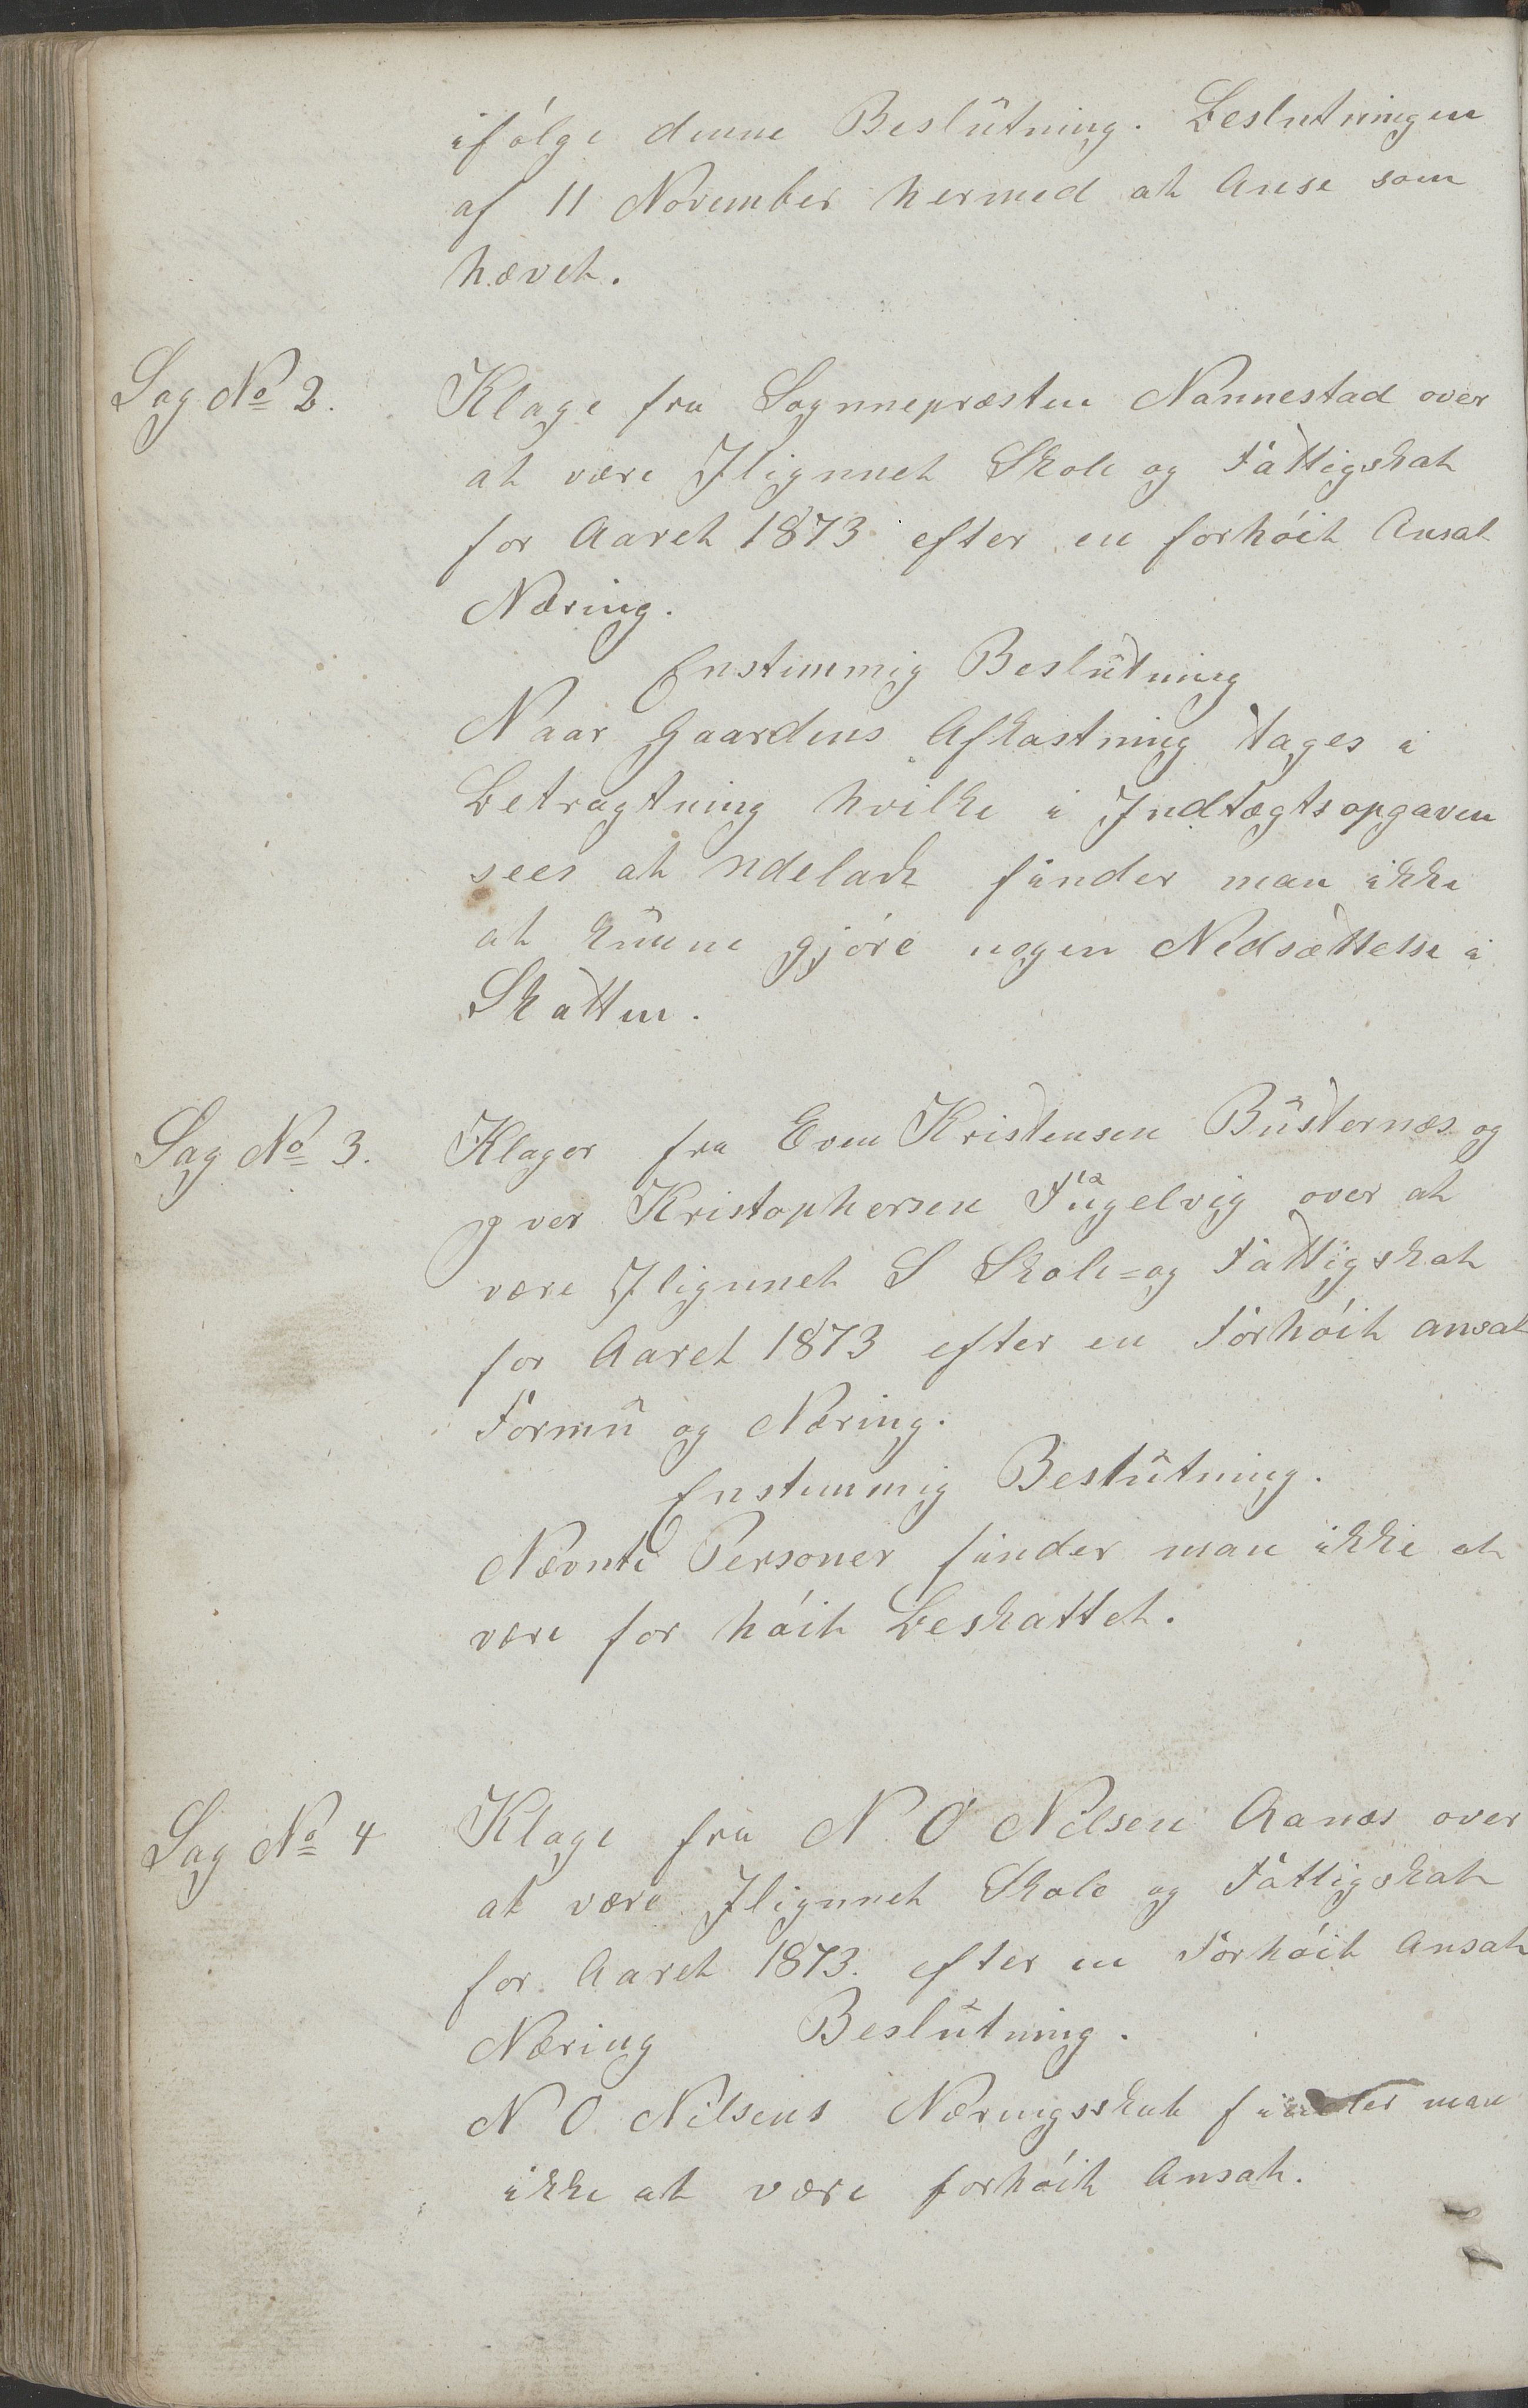 ifølge denne Beslutning. Beslutningen
af 11 November hermed at Anse som
hævet.
Sag No 2.
Klage fra Sognnepræsten Nannestad over
at være Ilignnet Skole og Fattigskat
for Aaret 1873 efter en forhøit Ansat
Næring.
Enstimmig Beslutning
Naar Gaardens Afkastning tages i
Betragtning hvilke i Indtægtsopgaven
sees at finder man ikke
at kunne gjøre nogen Nedsættelse i
Skatten.
Sag No 3.
Klager fra Even Kristensen Busternæs og
Kristophersen Fuglelvig over at
være Ilignnet S Skole= og Fattigskat
for Aaret 1873 efter en Forhøit ansat
Formu og Næring.
Enstimmig Beslutning.
Nævnte Personer finder man ikke at
være for høit Beskattet.
Sag No 4
Klage fra N. O Nilsen Aanæs over
at være Ilignnet Skole og Fattigskat
for Aaret 1873. efter en Forhøit Ansat
Næring Beslutning.
N O. Nilsens Næringsskat finder man
ikke at være forhøit Ansat.